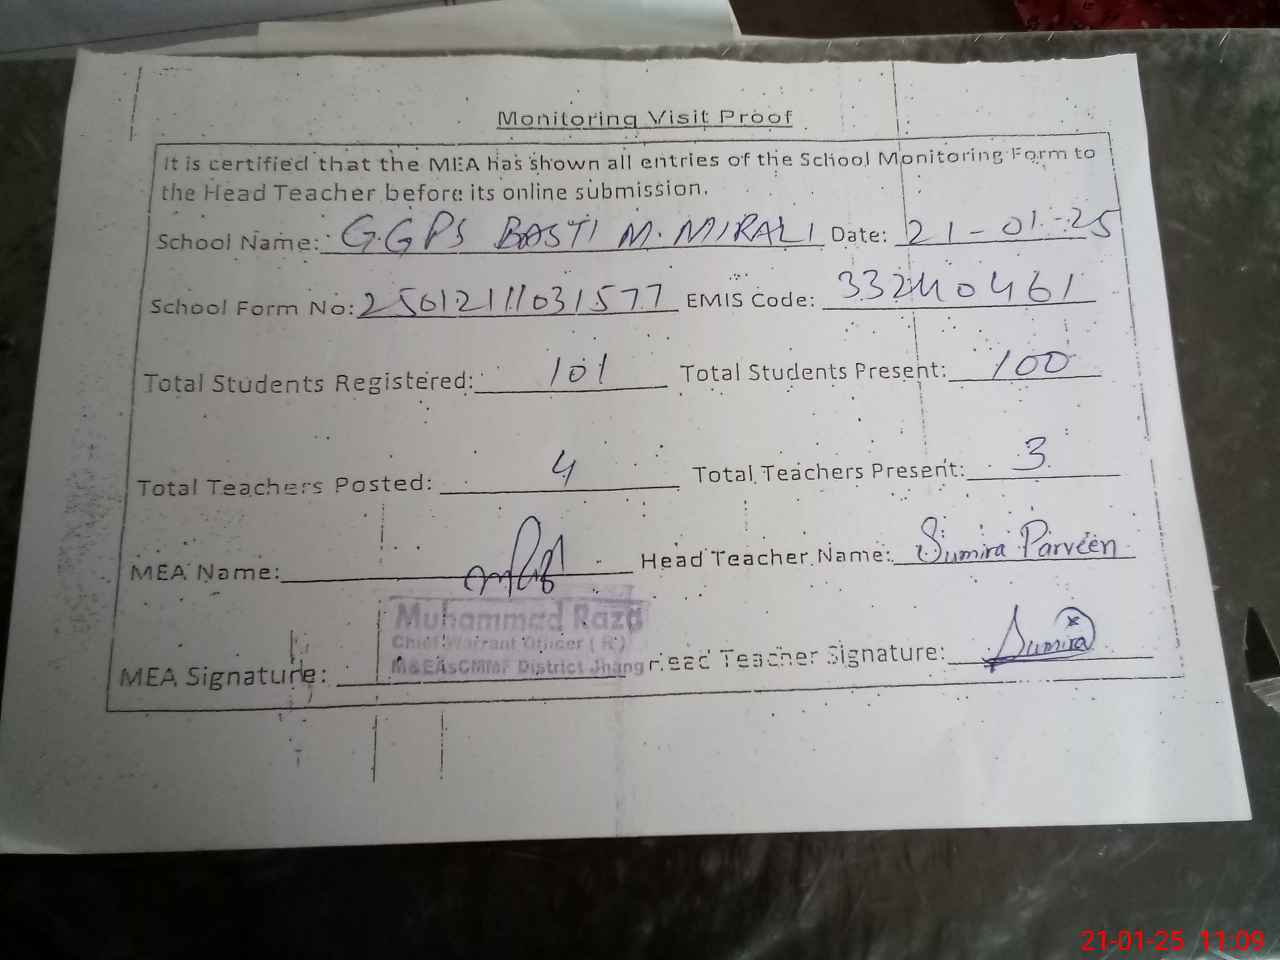 Monitoring Visit Proof
It is certified that the MEA has shown all entries of the School Monitoring Form to
the Head Teacher before its online submission.
School Name: G.GPS BASTI M. MIRALI Date: 21-01-25
School Form No: 25012111031577 EMIS Code: 33210461
Total Students Registered: 101 Total Students Present: 100
Total Teachers Posted: 4 Total Teachers Present: 3
MEA Name: Head Teacher Name: Sumira Parveen
Muhammad Raza
Chief Warrant Officer ( R )
M&EAsCMMF District Jhang
MEA Signature: Head Teacher Signature: Sumira
21-01-25 11:09